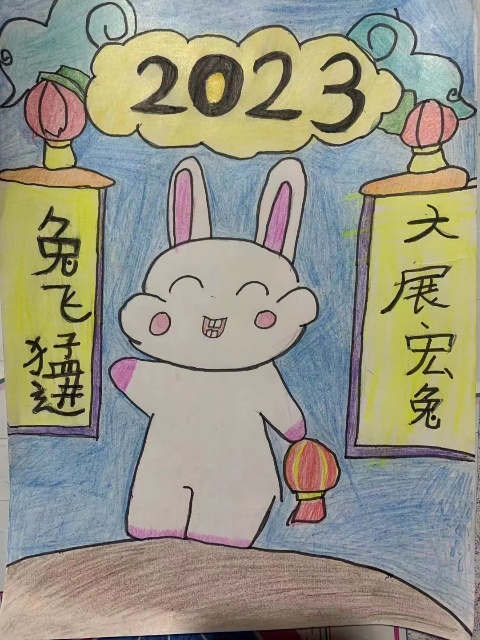 2023
兔飞猛进
大展宏兔